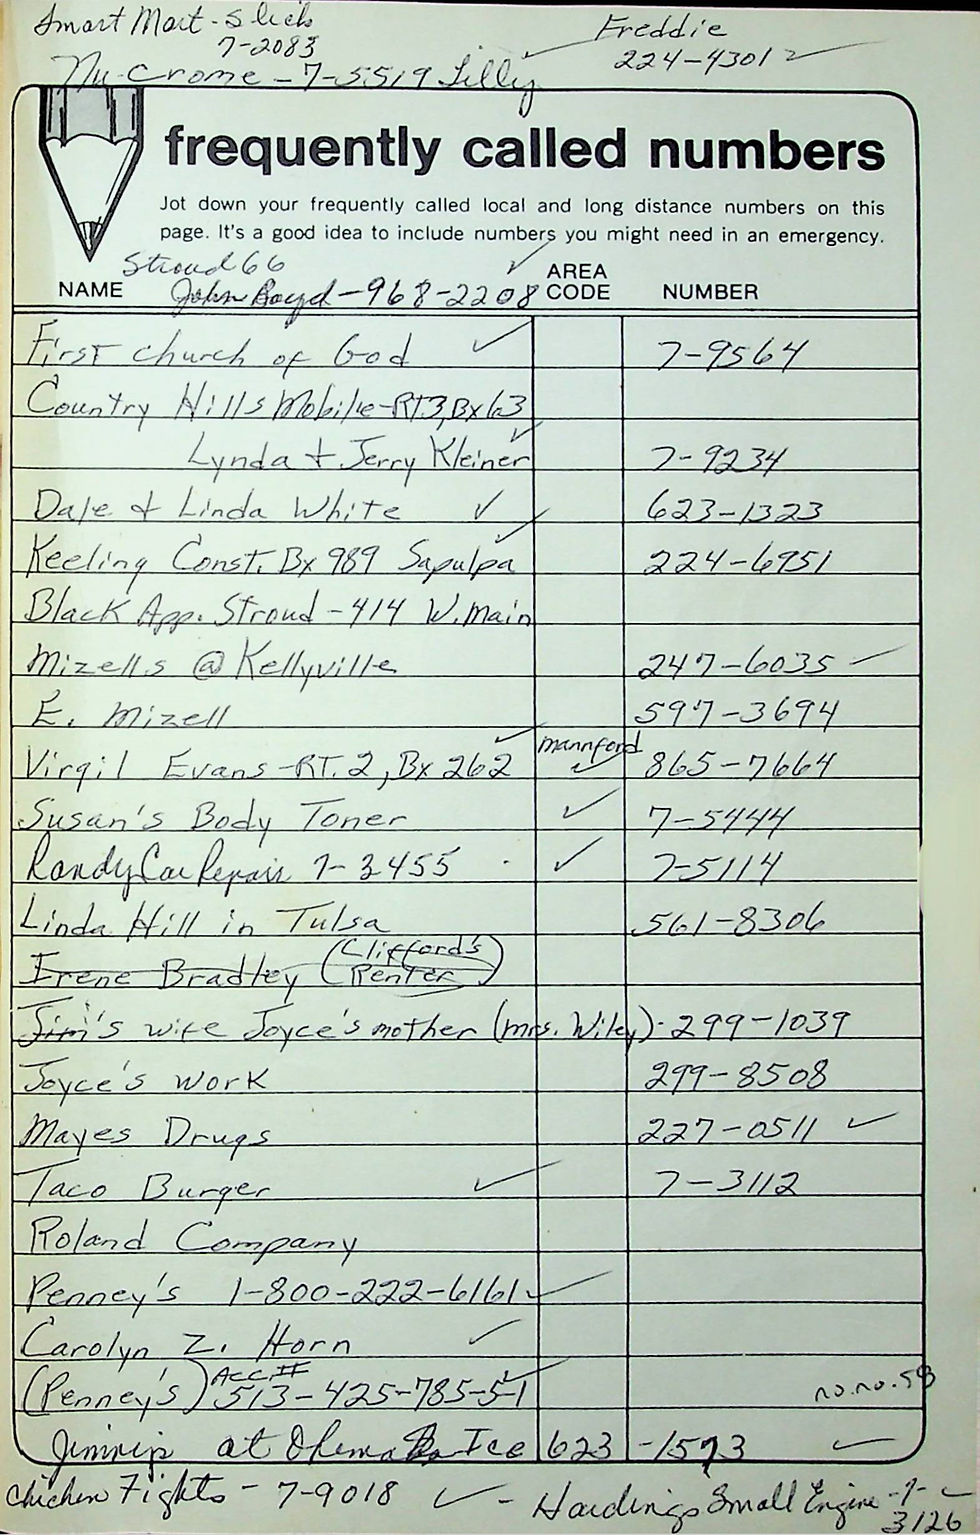 Smart Mart - Slick
7-2083
Freddie
224-4301 ✓
Nu-Crome - 7-5519 Lilly ✓
frequently called numbers
Jot down your frequently called local and long distance numbers on this
page. It's a good idea to include numbers you might need in an emergency.
Stroud 66
NAME John Boyd - 968-2208 ✓ AREA CODE NUMBER
First church of God ✓ 7-9564
Country Hills Mobile-RT.3, Bx 63
Lynda + Jerry Kleiner ✓ 7-9234
Dale & Linda White ✓ 623-1323
Keeling Const. Bx 989 Sapulpa ✓ 224-6951
Black App. Stroud - 414 W. Main
Mizells @ Kellyville 247-6035 ✓
E. Mizell 597-3694
Virgil Evans - RT. 2, Bx 262 ✓ Mannford ✓ 865-7664
Susan's Body Toner ✓ 7-5444
Randy Car Repair 7-3455 ✓ 7-5114
Linda Hill in Tulsa 561-8306
Irene Bradley (Clifford's Renter)
Jim's wife Joyce's mother (Mrs. Wiley) - 299-1039
Joyce's work 299-8508
Mayes Drugs 227-0511 ✓
Taco Burger ✓ 7-3112
Roland Company
Penney's 1-800-222-6161 ✓
Carolyn Z. Horn ✓
(Penney's) Acc.# 513-425-785-5-1 ✓ no.no. 58
at Ice 623-1593 ✓
Chicken Fights - 7-9018 ✓ - Hardings Small Engine - 7-3126 ✓